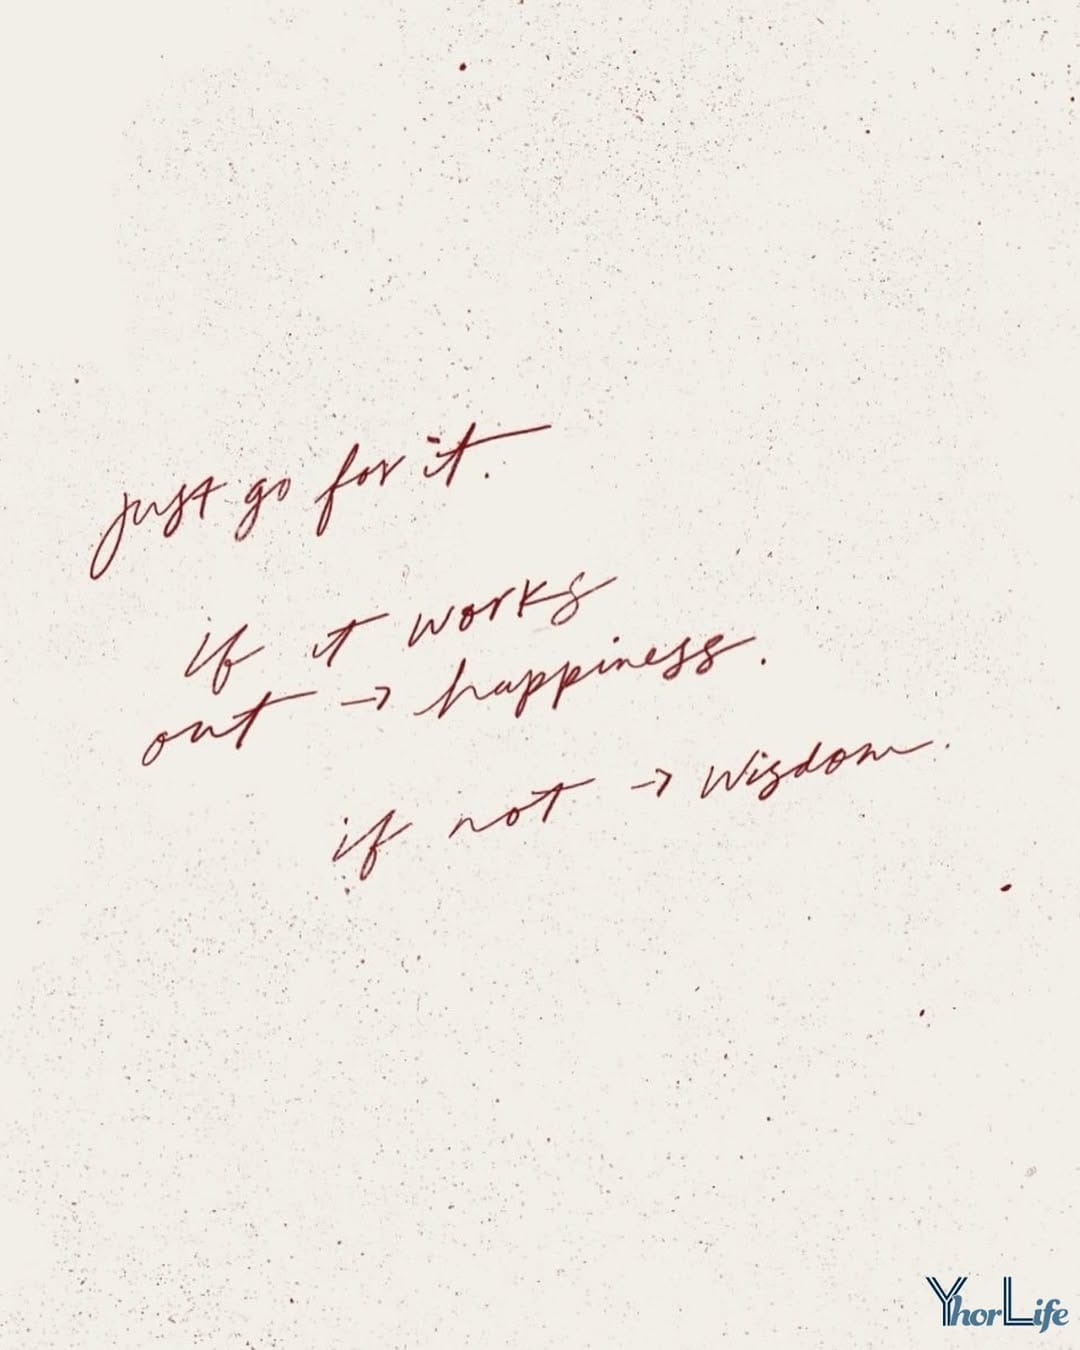 just go for it.
if it works
out → happiness.
if not → Wisdom.
YhorLife